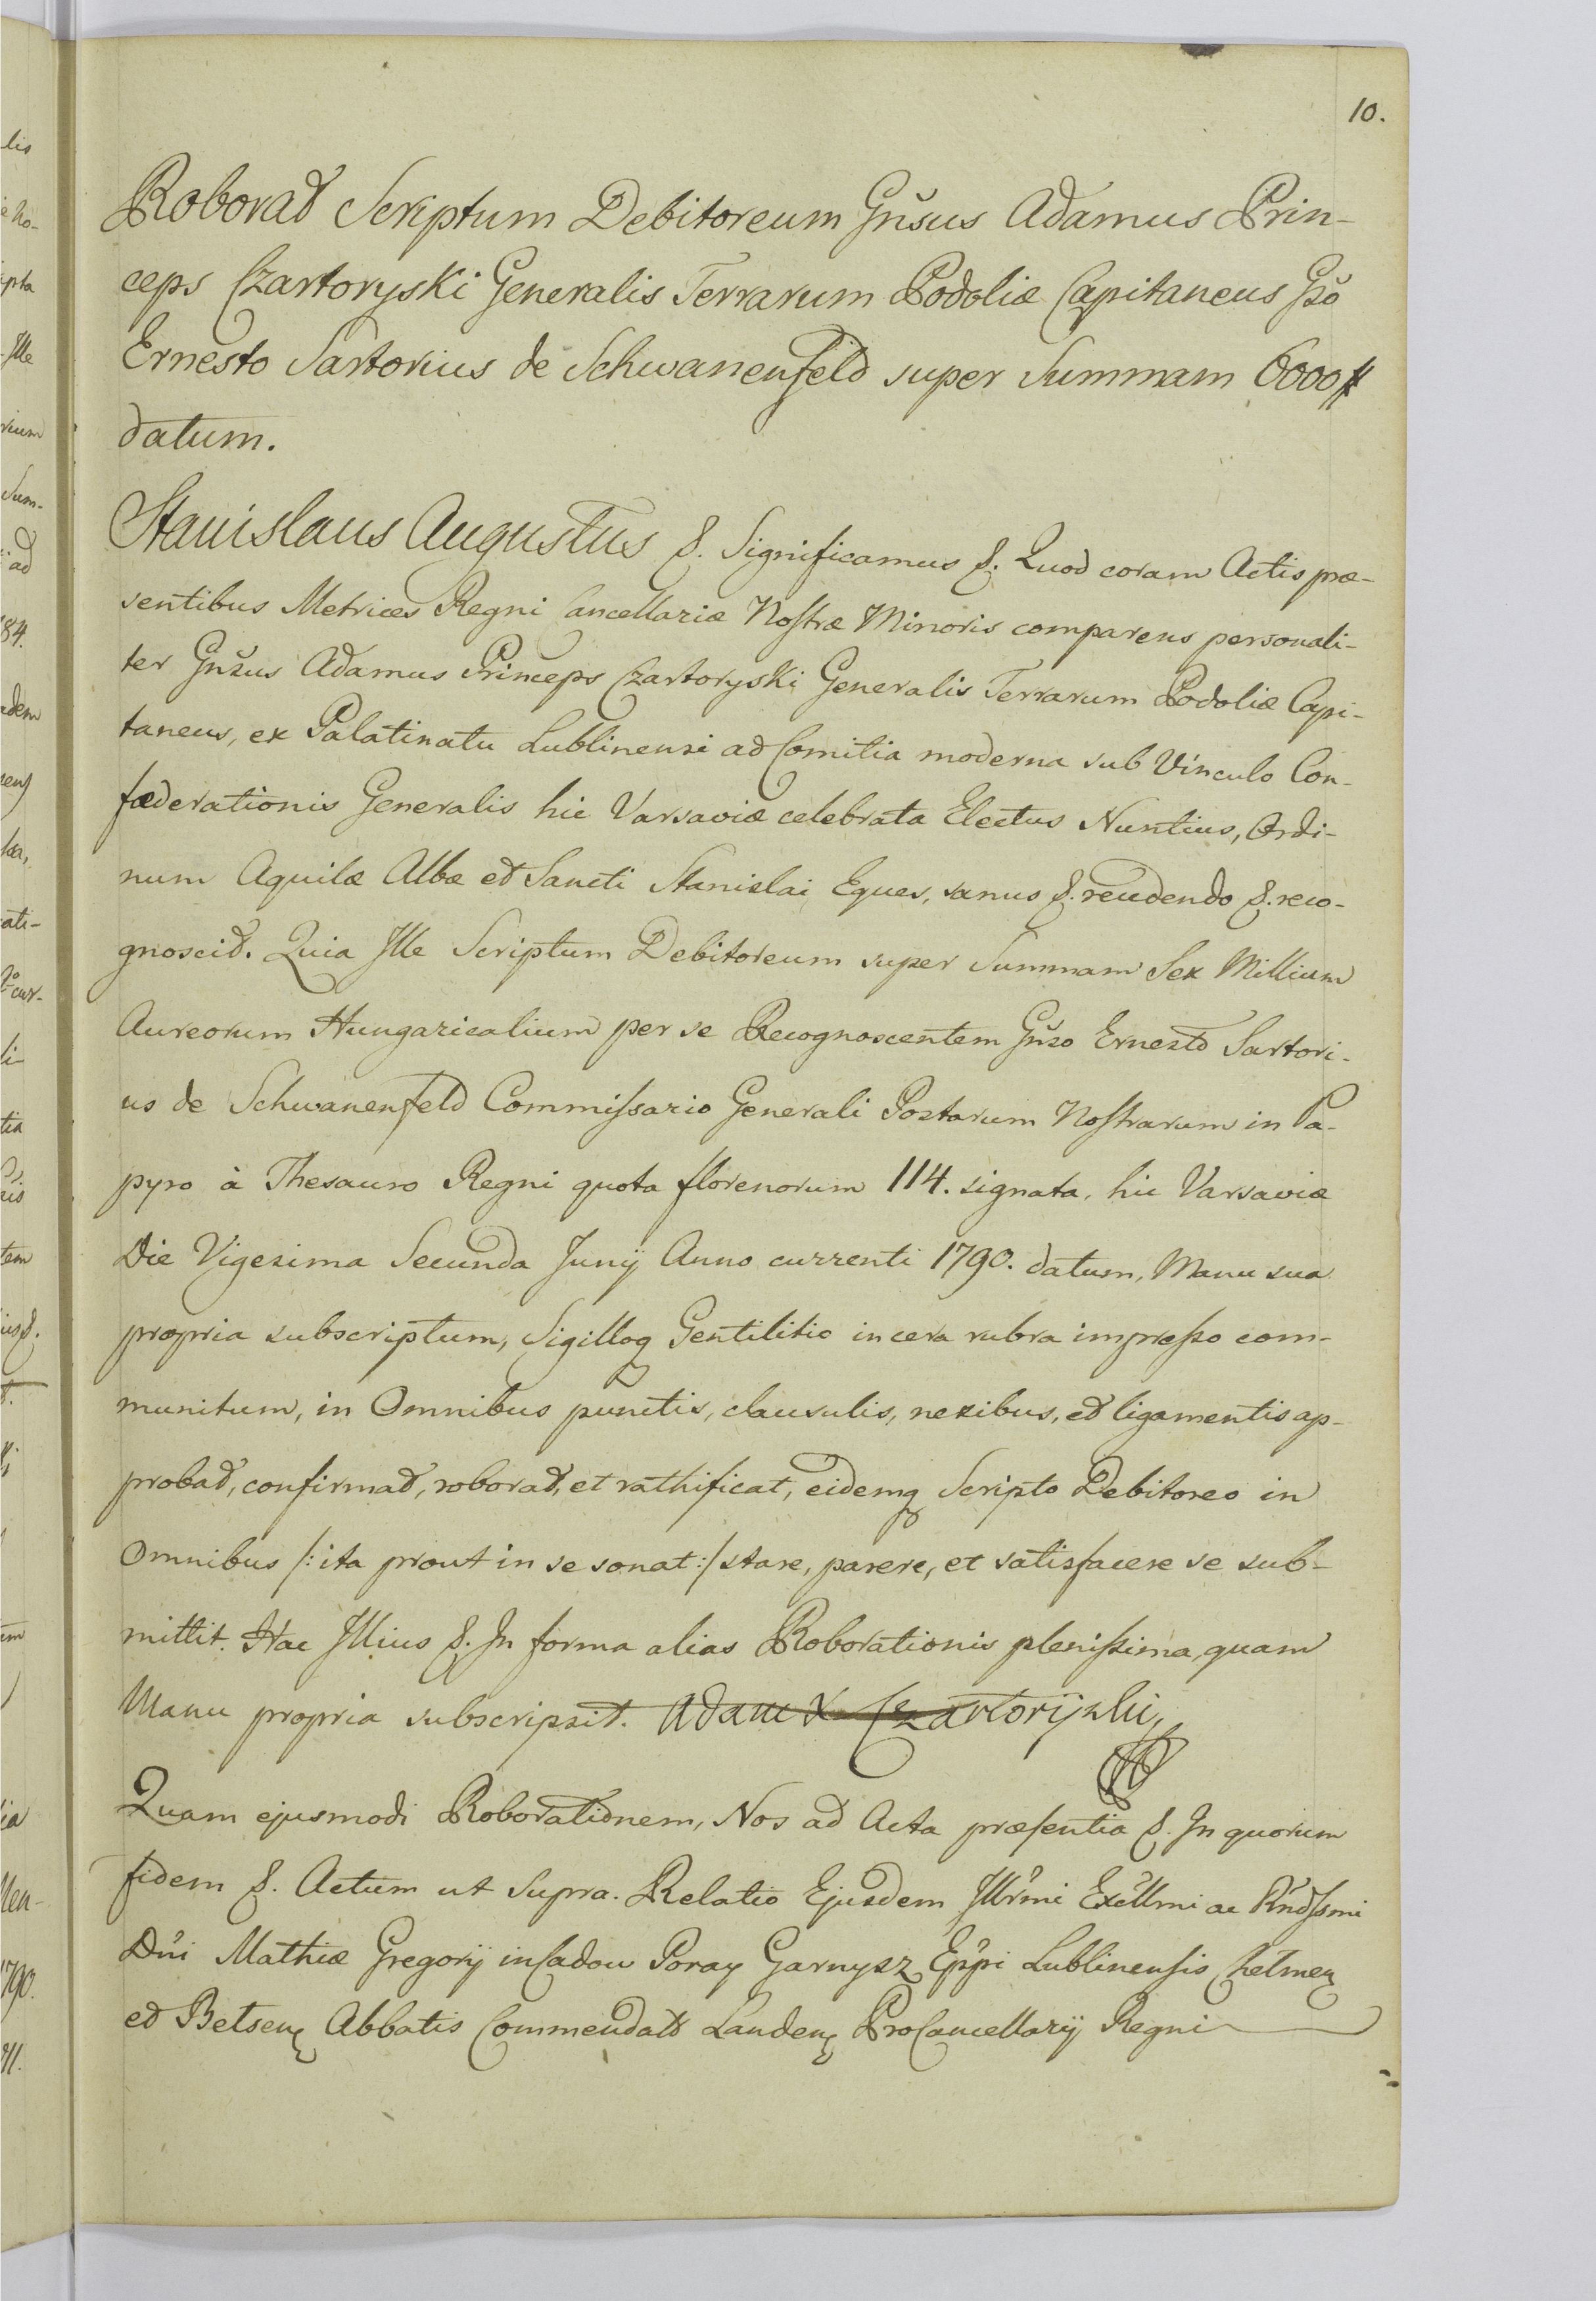 10.
Roborat Scriptum Debitoreum Gnsus Adamus Prin-
ceps Czartoryski Generalis Terrarum Podoliæ Capitaneus Gso
Ernesto Sartorius de Schwanenfeld super Summam 6000 #
datum.
Stanislaus Augustus &. Significamus &. Quod coram Actis præ-
sentibus Metrices Regni Cancellariæ Nostræ Minoris comparens personali-
ter Gnsus Adamus Princeps Czartoryski Generalis Terrarum Podoliæ Capi-
taneus, ex Palatinatu Lublinensi ad Comitia moderna sub Vinculo Con-
fæderationis Generalis hic Varsaviæ celebrata Electus Nuntius, Ordi-
num Aquilæ Albæ et Sancti Stanislai Eques, sanus &. reudendo &. reco-
gnoscit. Quia Ille Scriptum Debitoreum super Summam Sex Millium
Aureorum Hungaricalium per se Recognoscentem Gnso Ernesto Sartori-
us de Schwanenfeld Commissario Generali Postarum Nostrarum in Pa-
pyro à Thesauro Regni quota florenorum 114. signata, hic Varsaviæ
Die Vigesima Secunda Junij Anno currenti 1790. datum, Manu sua
propria subscriptum, Sigilloq Gentilitio in cera rubra impresso com-
munitum, in Omnibus punctis, clausulis, nexibus, et ligamentis ap-
probat, confirmat, roborat, et rathificat, eidemq Scripto Debitoreo in
Omnibus /: ita prout in se sonat :/ stare, parere, et satisfacere se sub-
mittit. Hac Illius &. In forma alias Roborationis plenissima, quam
Manu propria subscripsit. Adam X Czartoryski
Quam ejusmodi Roborationem, Nos ad Acta præsentia &. In quorum
fidem &. Actum ut supra. Relatio Ejusdem Illrmi Excllmi ac Rndssmi
Dni Mathiæ Gregorij in Cadow Poray Garnysz Eppi Lublinensis Chelmen
et Belsen Abbatis Commendat Landen ProCancellarij Regni